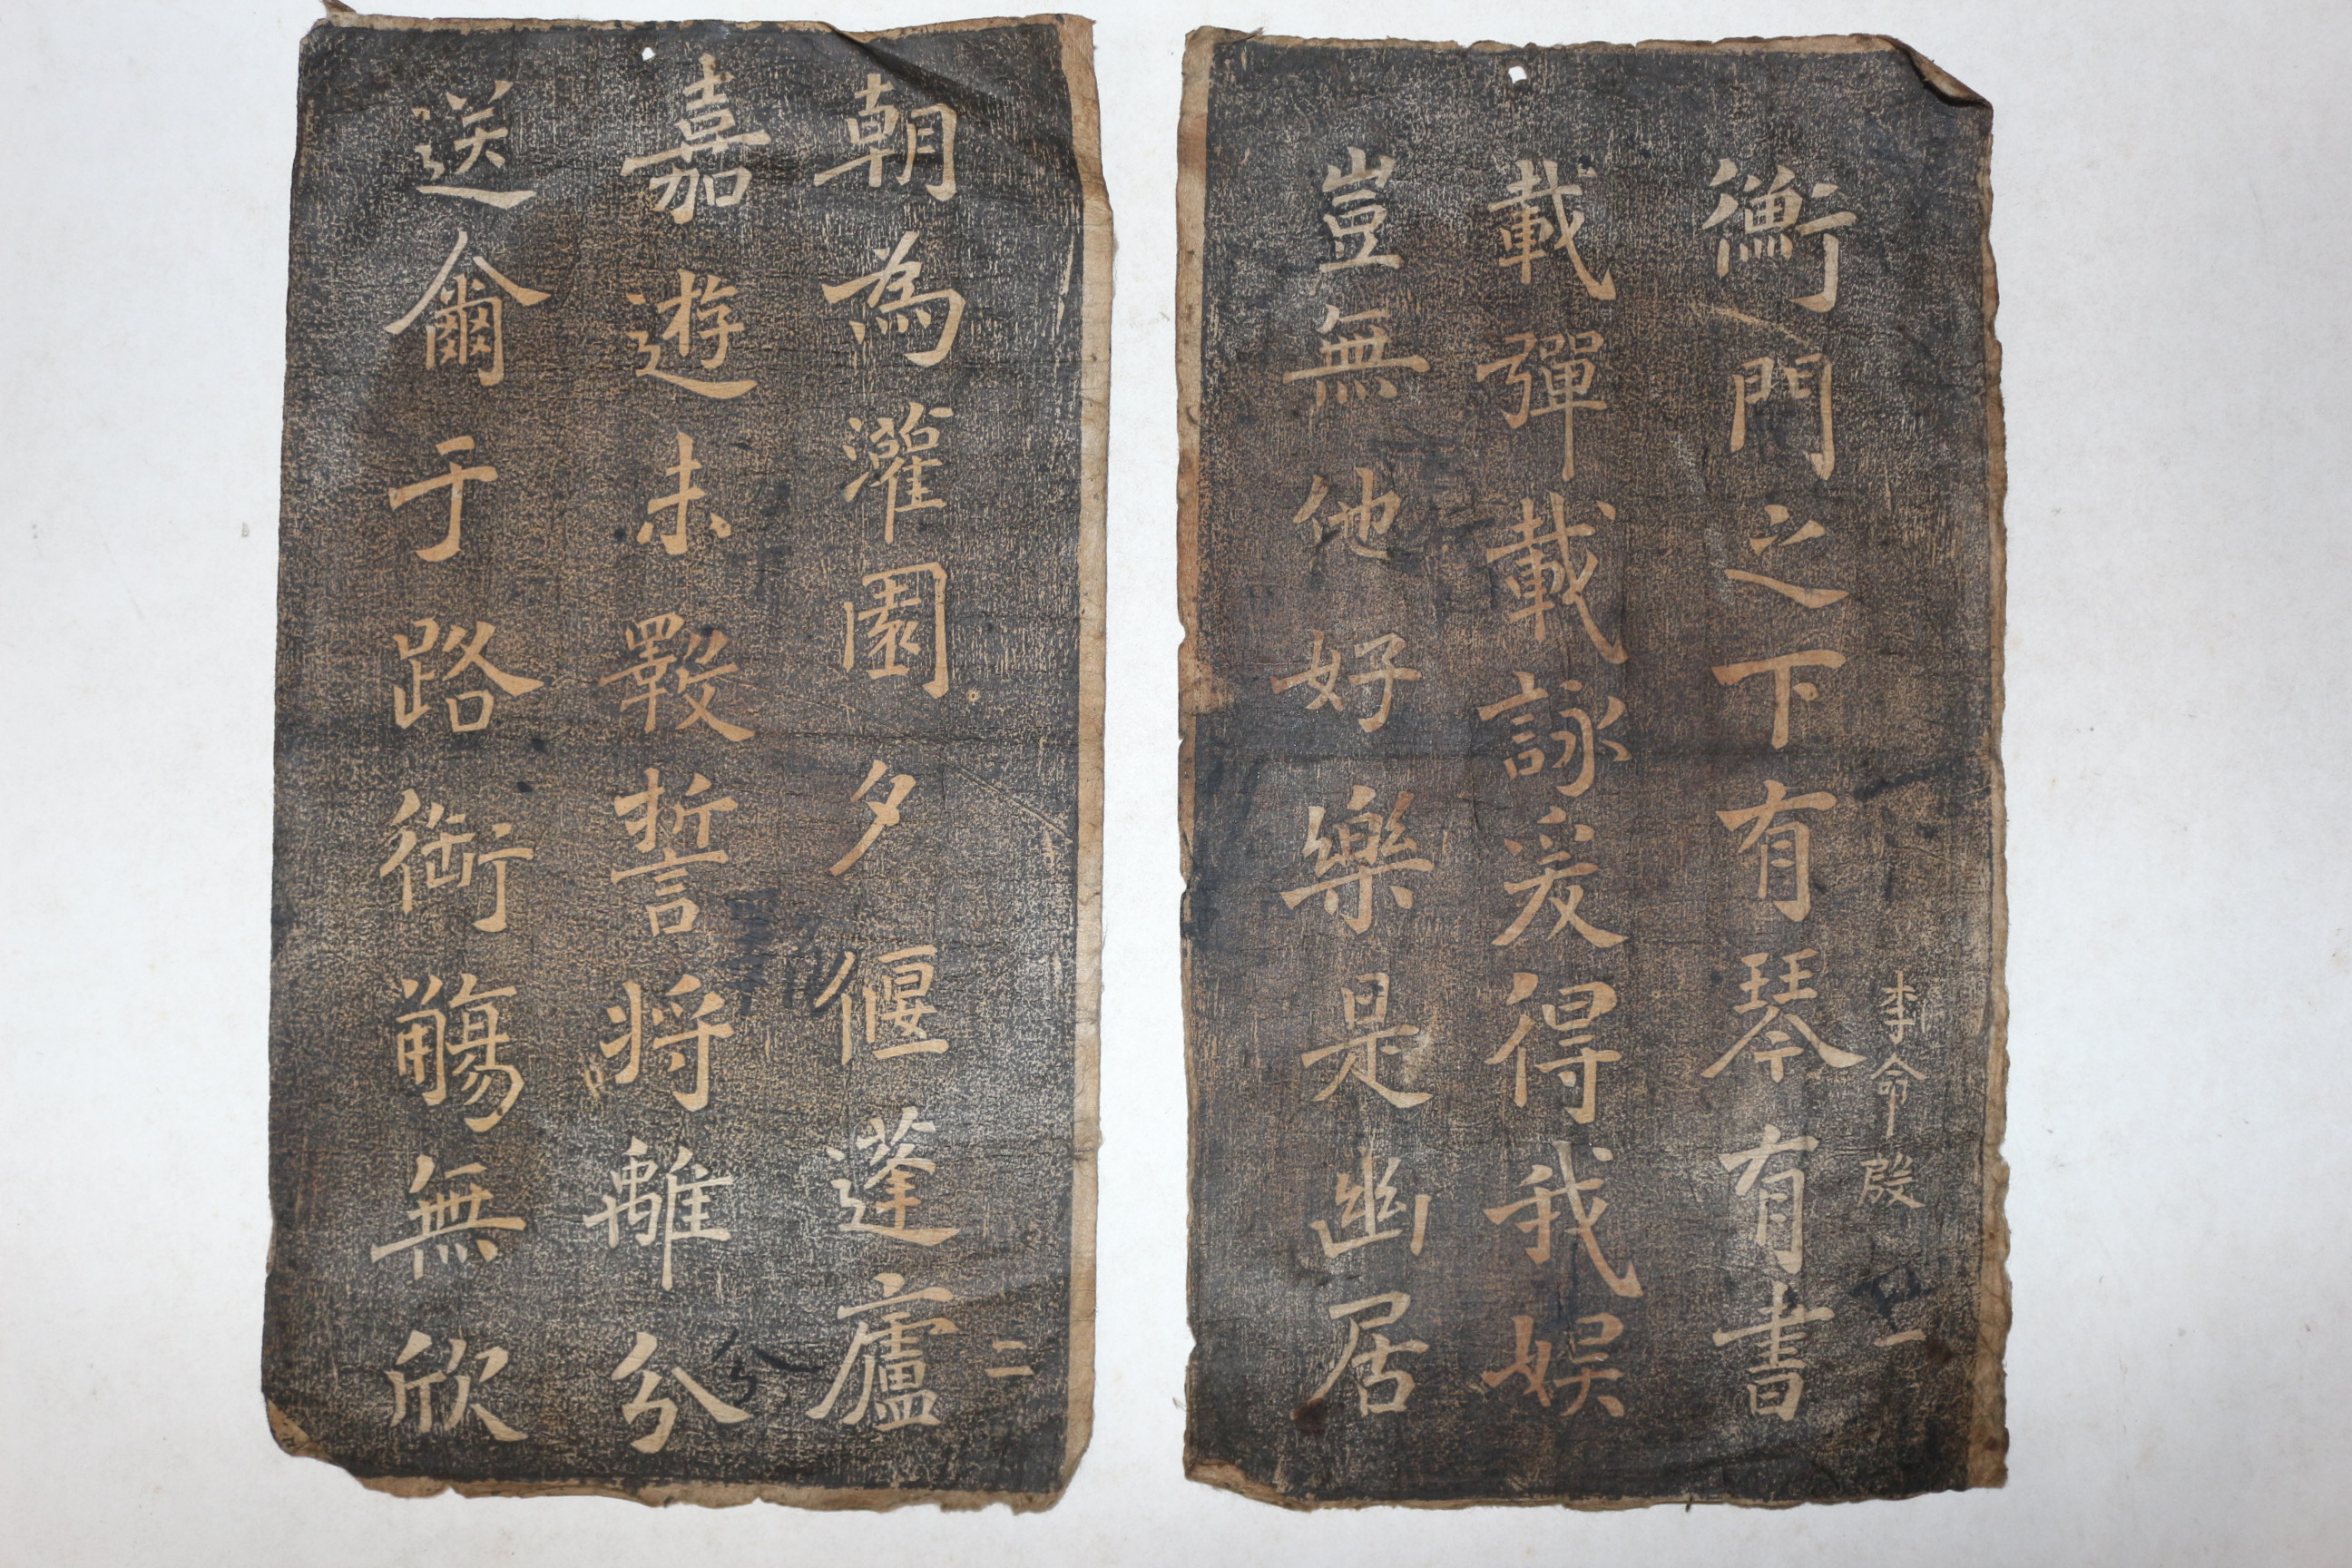 李命殷
一
衡門之下有琴有書
載彈載詠爰得我娛
豈無他好樂是幽居
二
朝為灌園夕偃蓬廬
嘉遊未斁誓将離分
送爾于路銜觴無欣